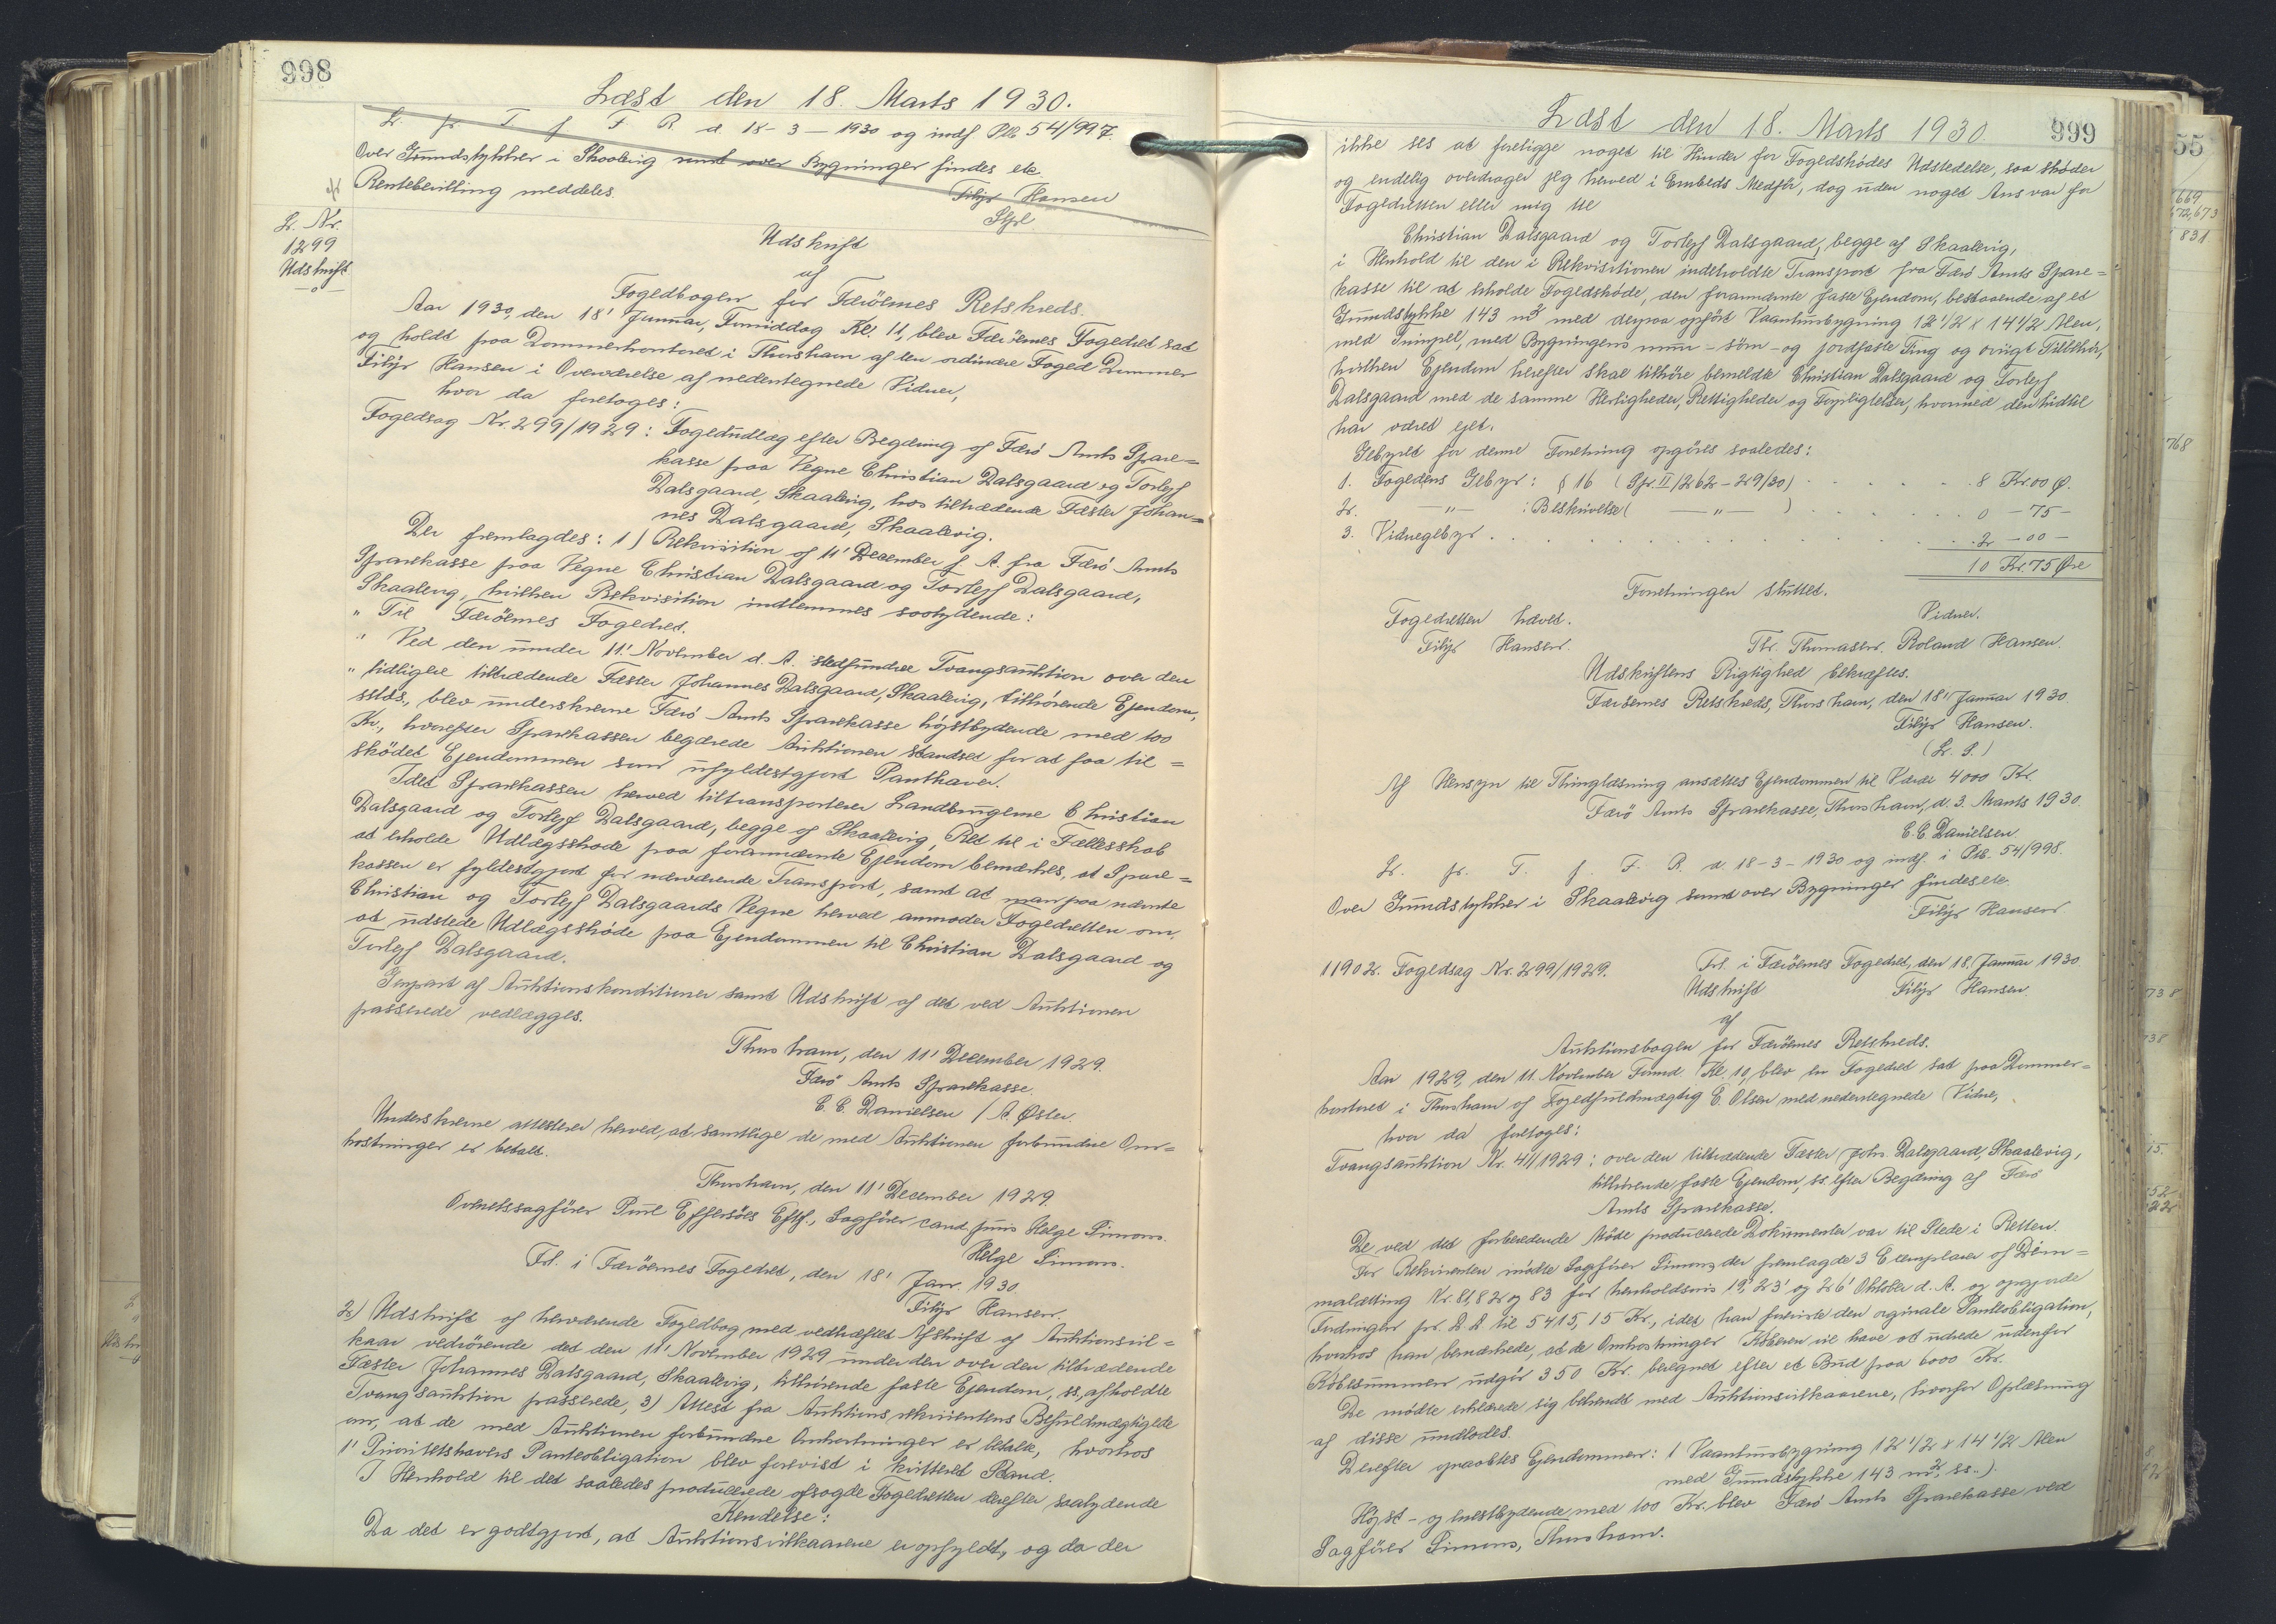 998
Læst den 18. Marts 1930.
L. fr. T. f. F. R. d. 18-3-1930 og indf Ptb 54/997.
Over Grundstykker i Skaalevig samt over Bygninger findes etc.
Rentebevilling meddeles.
Filip Hansen
L. Nr.
1299
Udskrift
Udskrift
af
Fogedbogen for Færöernes Retskreds.
Aar 1930, den 18' Januar, Formiddag Kl. 11, blev Færöernes Fogedret sat
og holdt paa Dommerkontoret i Thorshavn af den ordinære Foged Dommer
Filip Hansen i Overværelse af nedentegnede Vidner,
hvor da foretoges:
Fogedsag Nr. 299/1929: Fogedudlæg efter Begæring af Færö Amts Spare=
kasse paa Vegne Christian Dalsgaard og Torleif
Dalsgaard, Skaalevig, hos tiltrædende Fæster Johan=
nes Dalsgaard, Skaalevig.
Der fremlagdes: 1) Rekvisition af 11' December f. A. fra Færö Amts
Sparekasse paa Vegne Christian Dalsgaard og Torleif Dalsgaard,
Skaalevig, hvilken Rekvisition indlemmes saalydende:
" Til Færöernes Fogedret.
" Ved den under 11' November d. A. stedfundne Tvangsauktion over den
" tidligere tiltrædende Fæster Johannes Dalsgaard, Skaalevig, tilhørende Ejendom,
sstds., blev underskrevne Færö Amts Sparekasse højstbydende med 100
Kr., hvorefter Sparekassen begærede Auktionen standset for at faa til=
skødet Ejendommen som ufyldestgjort Panthaver.
Idet Sparekassen herved tiltransporterer Landbrugerne Christian
Dalsgaard og Torleif Dalsgaard, begge af Skaalevig, Ret til i Fællesskab
at erholde Udlægsskøde paa forannævnte Ejendom bemærkes, at Spare=
kassen er fyldestgjort for nærværende Transport, samt at man paa nævnte
Christian og Torleif Dalsgaards Vegne herved anmoder Fogedretten om,
at udstede Udlægsskøde paa Ejendommen til Christian Dalsgaard og
Torleif Dalsgaard.
Genpart af Auktionskonditioner samt Udskrift af det ved Auktionen
passerede vedlægges.
Thorshavn, den 11' December 1929.
Færö Amts Sparekasse.
C. C. Danielsen / A. Øster.
Underskrevne attesterer herved, at samtlige de med Auktionen forbundne Om=
kostninger er betalt.
Thorshavn, den 11' December 1929.
Overretssagfører Poul Effersöes Eftf., Sagfører cand. juris Helge Simons.
Helge Simons.
Frl. i Færöernes Fogedret, den 18' Janr. 1930.
Filip Hansen.
2) Udskrift af herværende Fogedbog med vedhæftet Afskrift af Auktionsvil=
kaar vedrörende det den 11' November 1929 under den over den tiltrædende
Fæster Johannes Dalsgaard, Skaalevig, tilhørende faste Ejendom, ss, afholdte
Tvangsauktion passerede, 3) Attest fra Auktionsrekvirentens Befuldmægtigede
om, at de med Auktionen forbundne Omkostninger er betalt, hvorhos
1' Prioritetshavers Panteobligation blev forevist i kvitteret Stand.
I Henhold til det saaledes producerede afsagde Fogedretten derefter saalydende
Kendelse:
Da det er godtgjort, at Auktionsvilkaarene er opfyldt, og da der
Læst den 18. Marts 1930.
999
ikke ses at foreligge noget til Hinder for Fogedskødes Udstedelse, saa skøder
og endelig overdrager jeg herved i Embeds Medfør, dog uden noget Ansvar for
Fogedretten eller mig til
Christian Dalsgaard og Torleif Dalsgaard, begge af Skaalevig,
i Henhold til den i Rekvisitionen indeholdte Transport fra Færö Amts Spare=
kasse til at erholde Fogedskøde, den forannævnte faste Ejendom, bestaaende af et
Grundstykke 143 m² med derpaa opført Vaaningshusbygning 12 1/2 x 14 1/2 Alen,
med Bygningens mur- søm- og jordfaste Ting og övrigt Tilbehør,
hvilken Ejendom herefter skal tilhöre bemeldte Christian Dalsgaard og Torleif
Dalsgaard med de samme Herligheder, Rettigheder og Forpligtelser, hvormed den hidtil
har været ejet.
Gebyret for denne Forretning opgöres saaledes:
1. Fogedens Gebyr: § 16 (Spr. II/262-29/30) . . . 8 Kr. 00 Ø.
2. —"— : Beskrivelse ( —"— ) . . . 0 - 75 -
3. Vidnegebyr . . . 2 - 00 -
10 Kr. 75 Øre
Forretningen sluttet.
Fogedretten hævet. Vidner.
Filip Hansen. Thr. Thomassen. Roland Hansen.
Udskriftens Rigtighed bekræftes.
Færöernes Retskreds, Thorshavn, den 18' Januar 1930
Filip Hansen.
(L. S.)
Af Hensyn til Thinglæsning ansættes Ejendommen til Værdi 4000 Kr.
Færö Amts Sparekasse, Thorshavn, d. 3. Marts 1930.
C. C. Danielsen
L. fr. T. f. F. R. d. 18-3-1930 og indf. i Ptb. 54/998.
Over Grundstykker i Skaalevig samt over Bygninger findes etc.
Filip Hansen
11902. Fogedsag Nr. 299/1929. Frl. i Færöernes Fogedret, den 18. Januar 1930
Udskrift Filip Hansen.
af
Auktionsbogen for Færöernes Retskreds.
Aar 1929, den 11. November Formd. Kl. 10, blev en Fogedret sat paa Dommer=
kontoret i Thorshavn af Fogedfuldmægtig E. Olsen med nedentegnede Vidne,
hvor da foretoges:
Tvangsauktion Nr. 41/1929: over den tiltrædende Fæster Johs. Dalsgaard, Skaalevig,
tilhørende faste Ejendom, ss. efter Begæring af Færö
Amts Sparekasse.
De ved det forberedende Möde producerede Dokumenter var til Stede i Retten.
For Rekvirenten mödte Sagfører Simons, der fremlagde 3 Exemplarer af Dim=
malætting Nr. 81, 82 og 83 for henholdsvis 19', 23' og 26' Oktober d. A. og opgjorde
Fordringen pr. D. D. til 5415,15 Kr., idet han foreviste den originale Panteobligation,
hvorhos han bemærkede, at de Omkostninger Köberen vil have at udrede udenfor
Köbesummen udgør 350 Kr. beregnet efter et Bud paa 6000 Kr.
De mödte erklærede sig bekendt med Auktionsvilkaarene, hvorfor Oplæsning
af disse undlodes.
Derefter opraabtes Ejendommen: 1 Vaaningshusbygning 12 1/2 x 14 1/2 Alen
med Grundstykke 143 m², ss.).
Højst- og enestbydende med 100 Kr. blev Færö Amts Sparekasse ved
Sagfører Simons, Thorshavn.